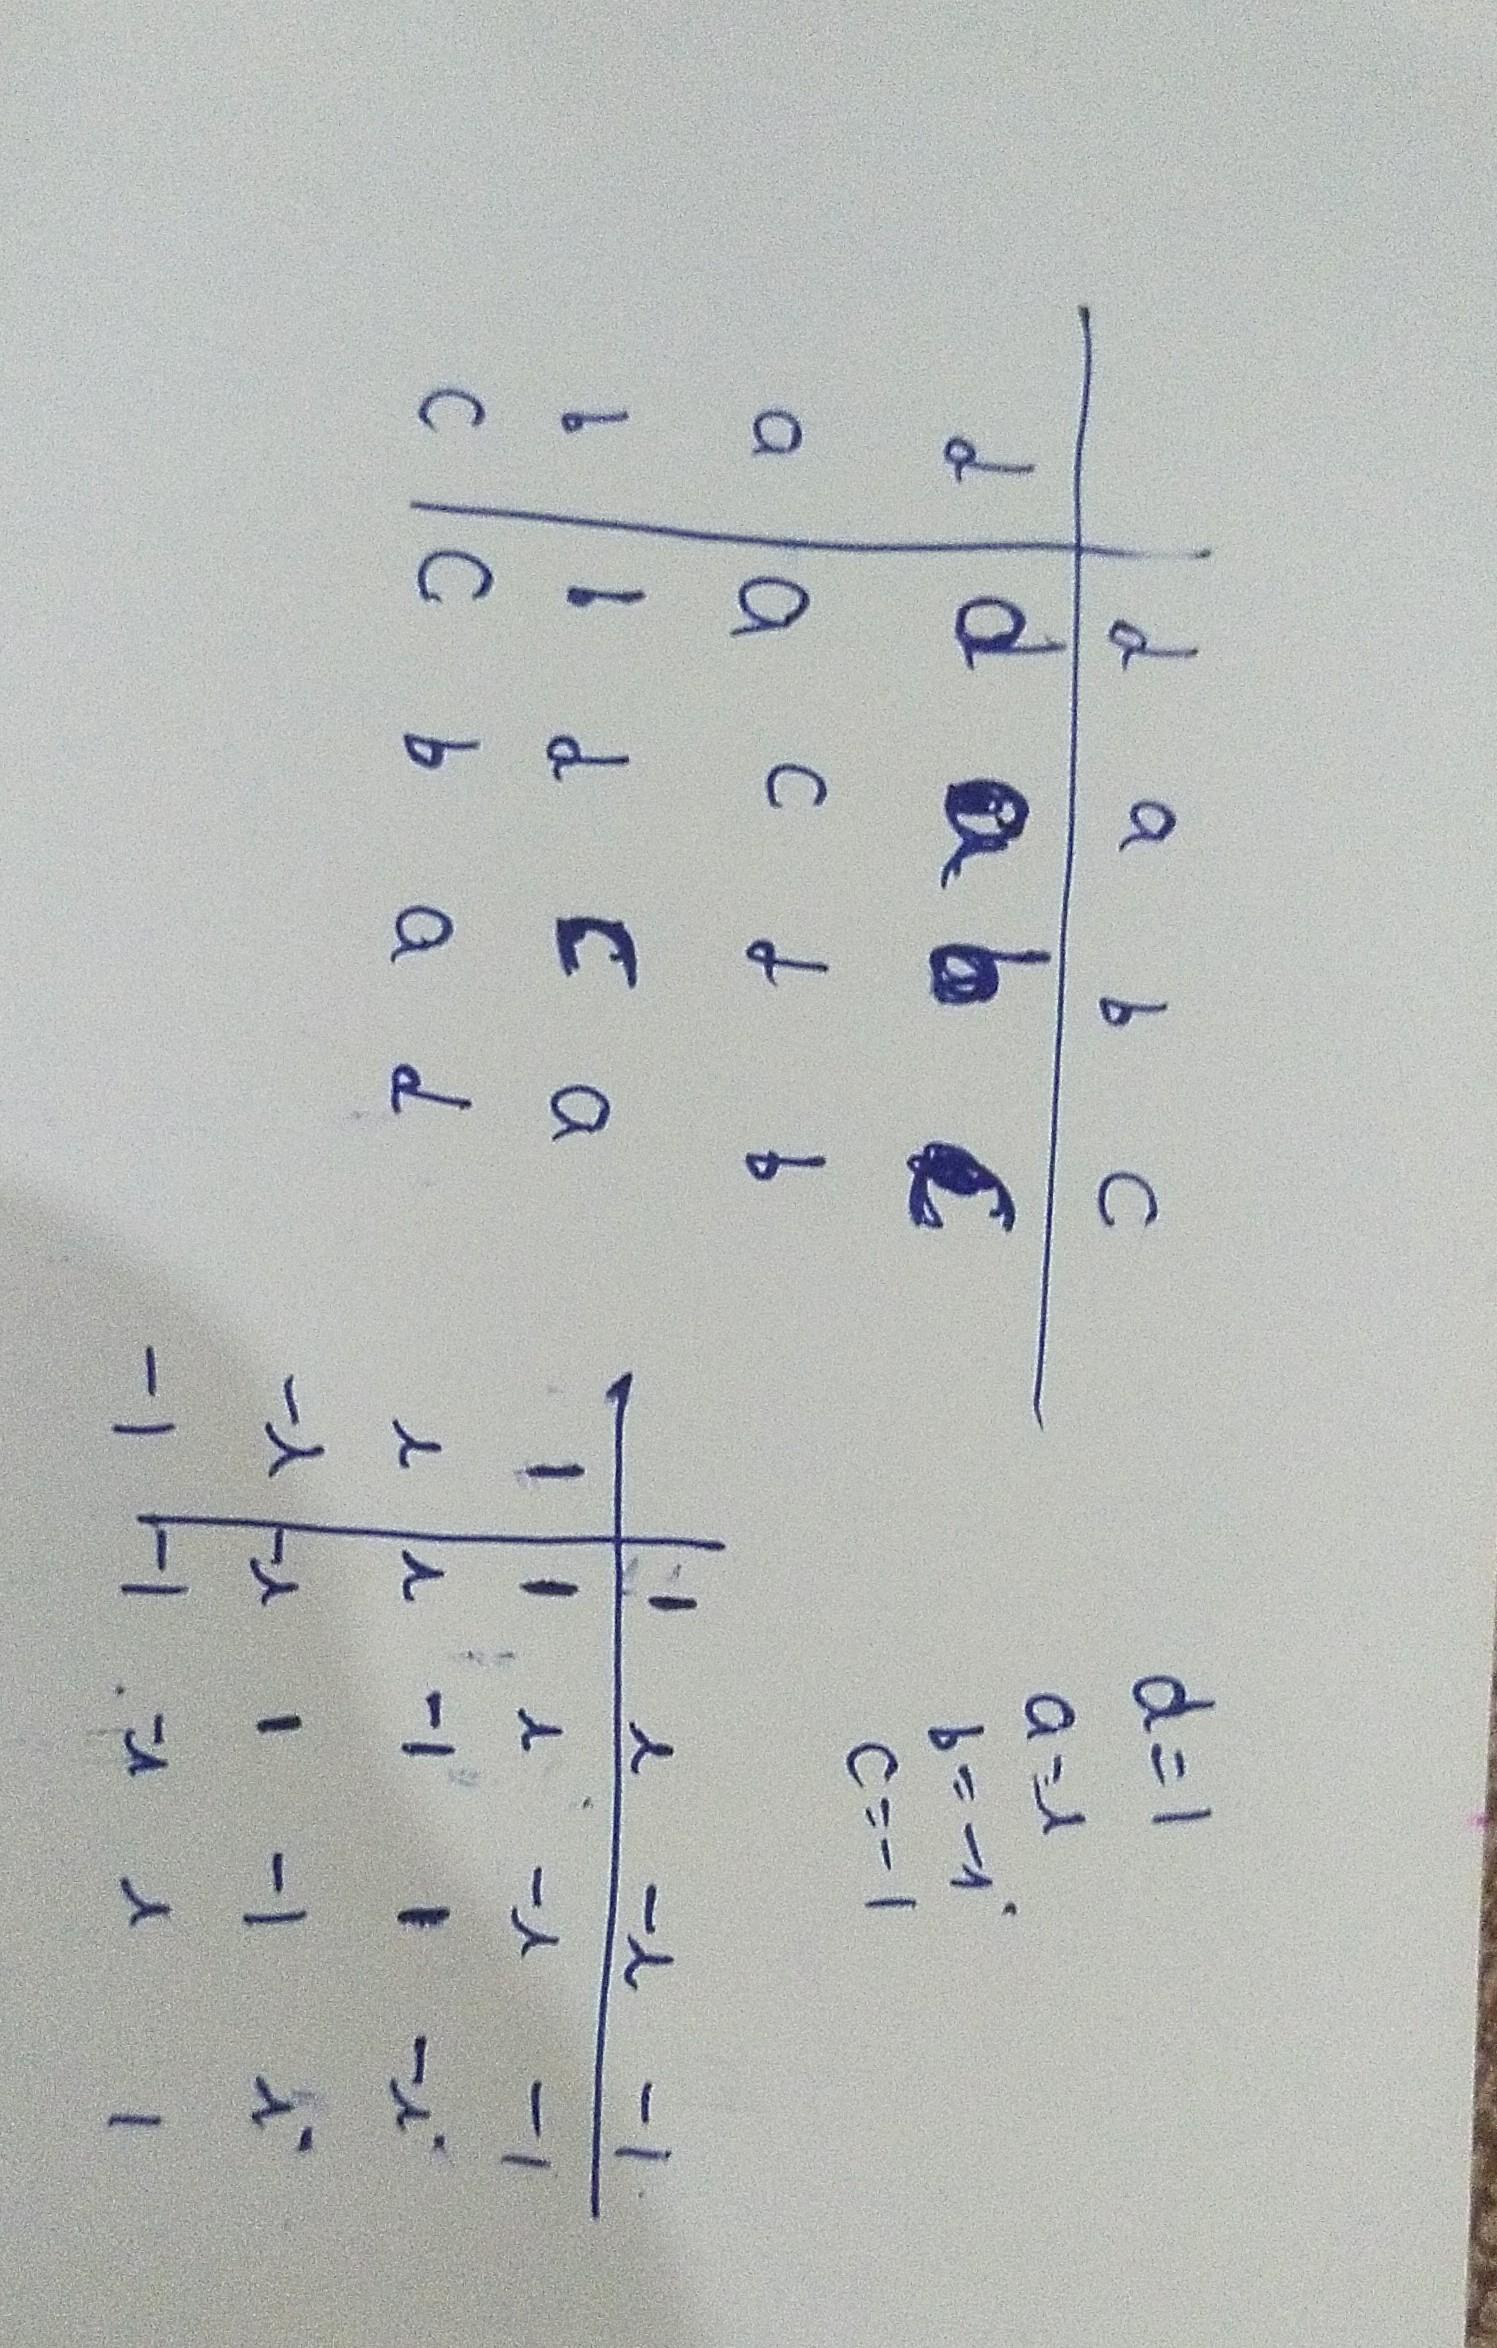 d a b c
d d a b c
a a c d b
b b d c a
c c b a d
d = 1
a = i
b = -i
c = -1
1 i -i -1
1 1 i -i -1
i i -1 1 -i
-i -i 1 -1 i
-1 -1 -i i 1